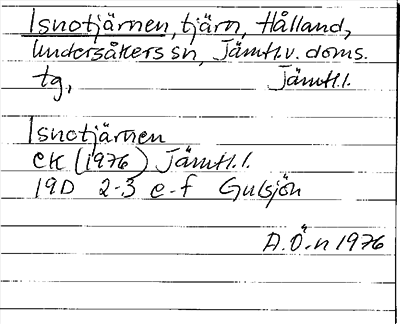 Isnotjärnen, tjärn, Hålland,
Undersåkers sn, Jämtl.v. doms.
tg, Jämtl.l.
Isnotjärnen
ek (1976) Jämtl.l.
19D 2-3 e-f Gulsjön
A.Ö-n 1976